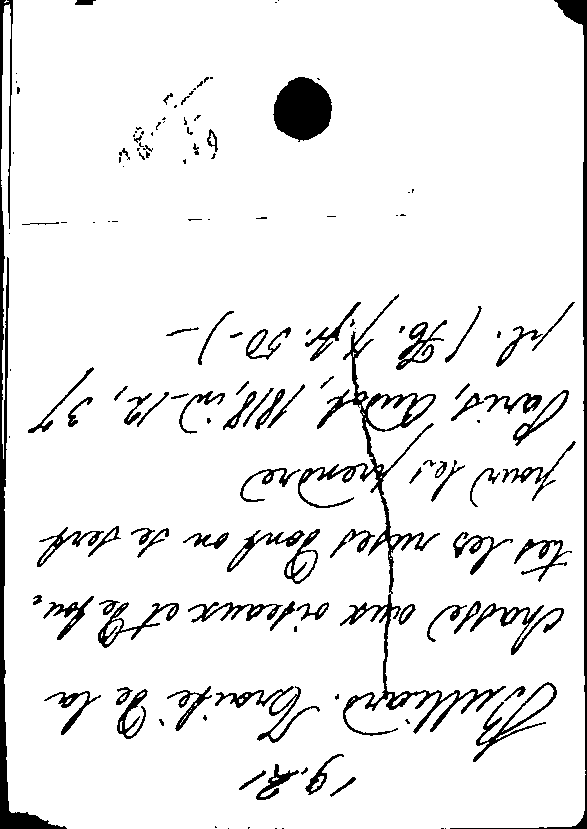 Bulliard. Traité de la
chasse aux oiseaux et de tou-
tes les ruses dont on se sert
pour les prendre
Paris, Audot, 1818, in-12, 37
pl. ( fr. 50 -) -